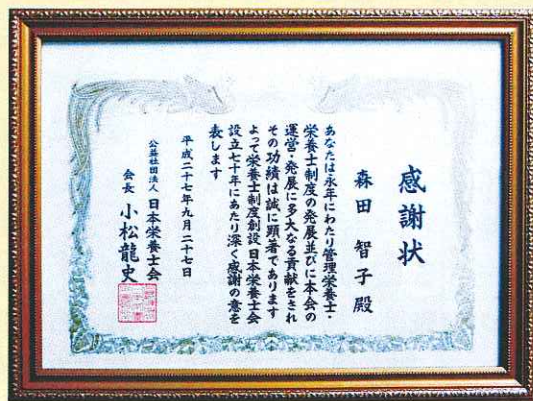 感謝状
森田 智子 殿
あなたは永年にわたり管理栄養士・
栄養士制度の発展並びに本会の
運営・発展に多大なる貢献をされ
その功績は誠に顕著であります
よって栄養士制度創設 日本栄養士会
設立七十年にあたり深く感謝の意を
表します
平成二十七年九月二十七日
公益社団法人 日本栄養士会
会長 小松龍史